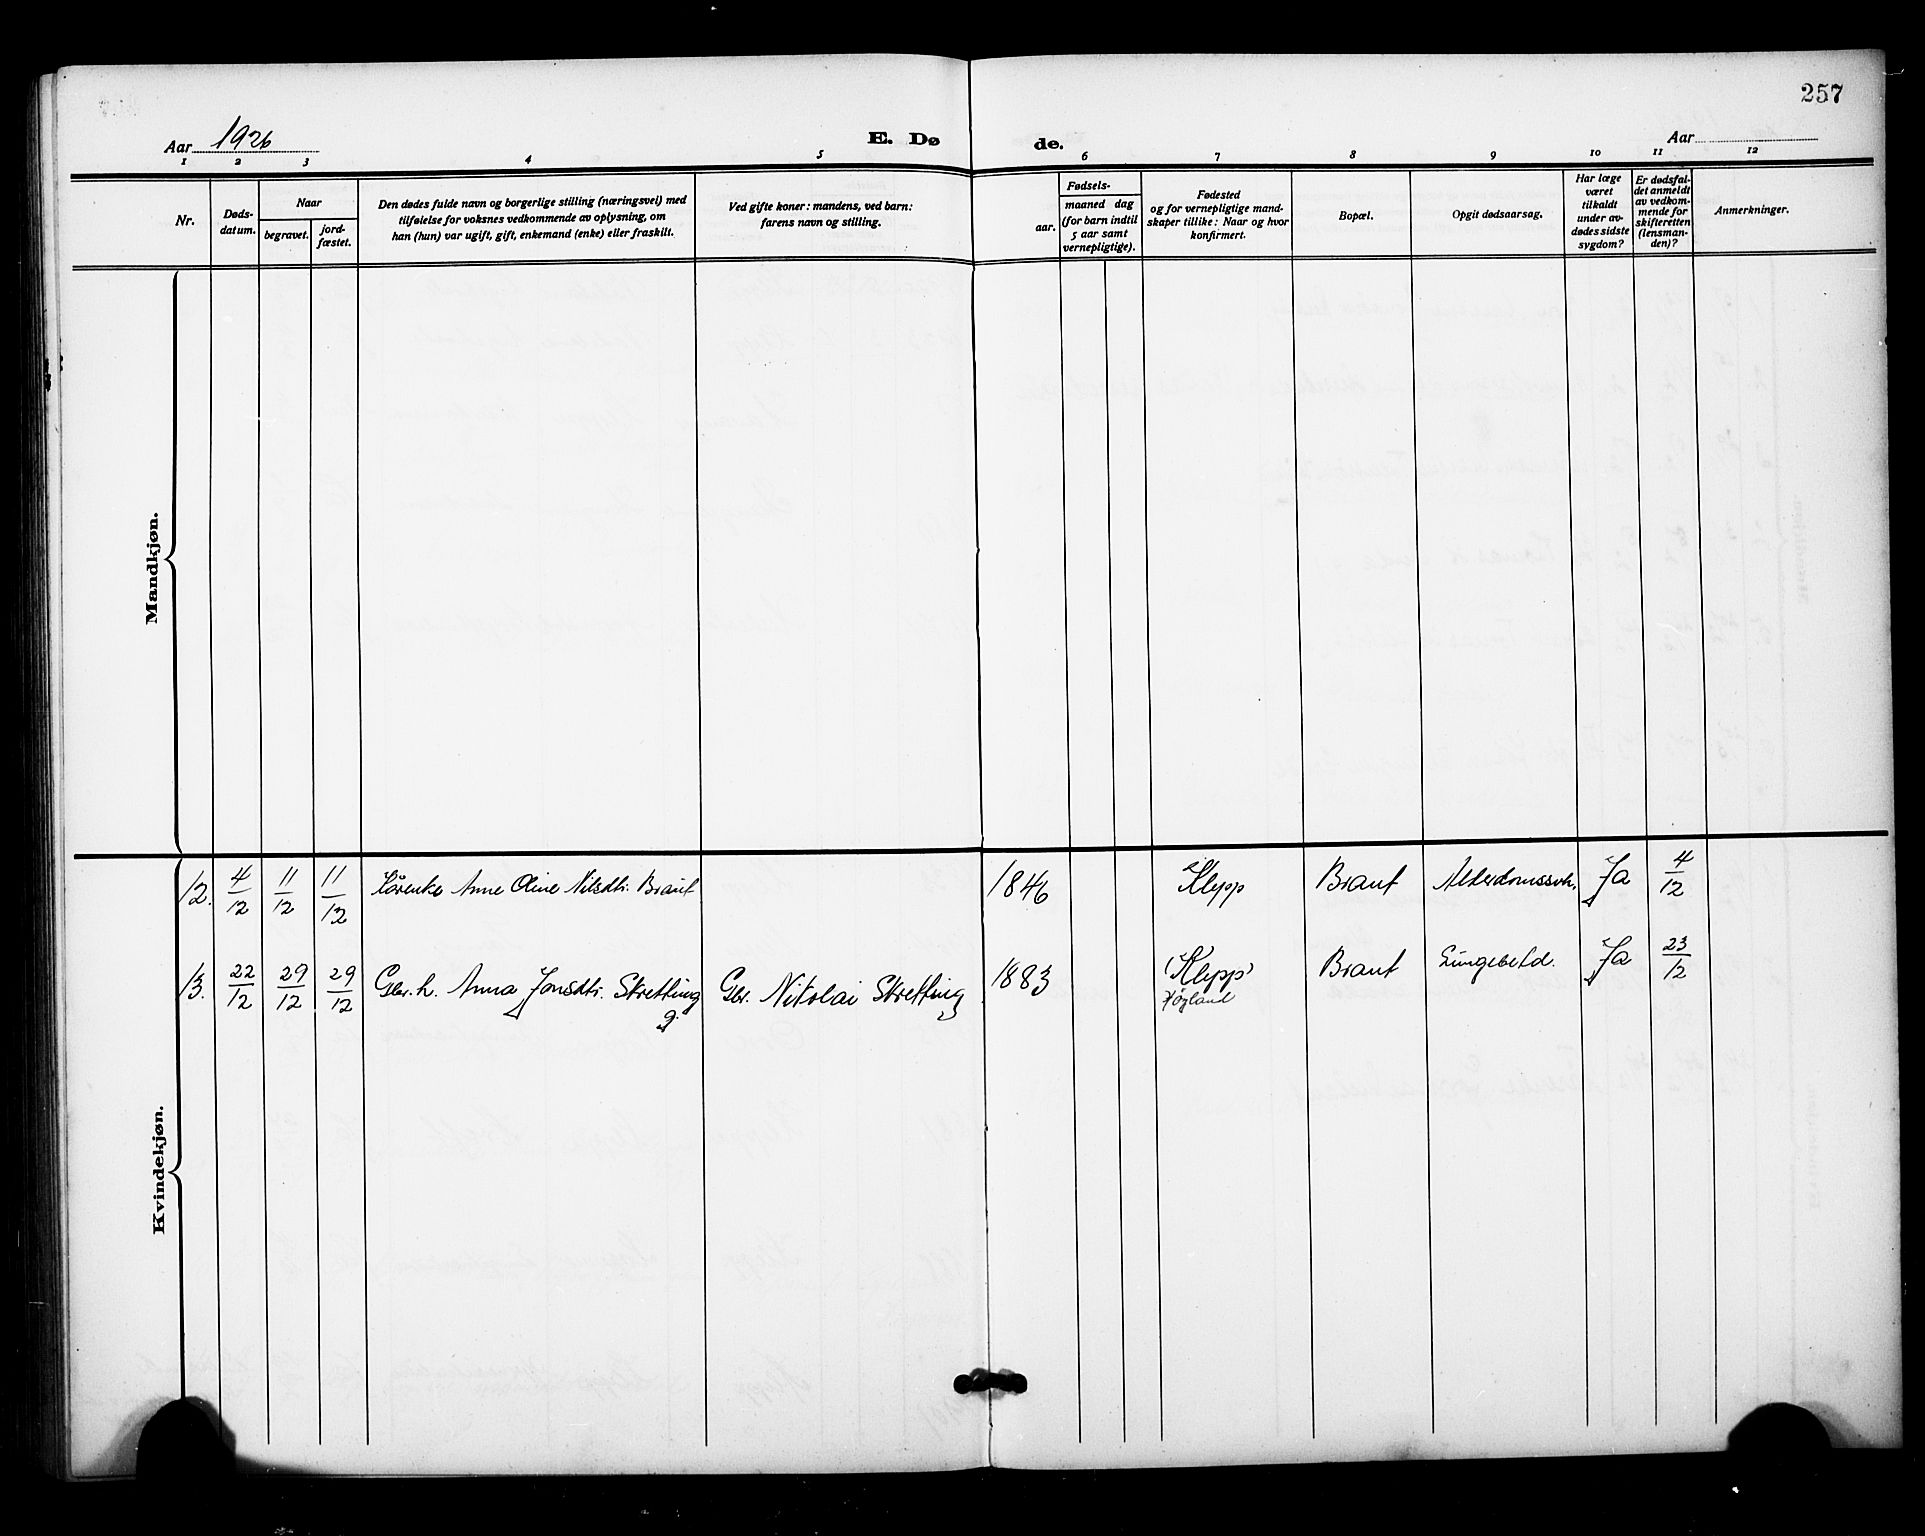 257
Aar 1926
E. Dø
de.
Aar
1 2 3 4 5 6 7 8 9 10 11 12
Nr.
Døds-
datum.
Naar
begravet.
jord-
fæstet.
Den dødes fulde navn og borgerlige stilling (næringsvei) med
tilføielse for voksnes vedkommende av oplysning, om
han (hun) var ugift, gift, enkemand (enke) eller fraskilt.
Ved gifte koner: mandens, ved barn:
farens navn og stilling.
Fødsels-
aar.
maaned dag
(for barn indtil
5 aar samt
vernepligtige).
Fødested
og for vernepligtige mand-
skaper tillike: Naar og hvor
konfirmert.
Bopæl.
Opgit dødsaarsag.
Har læge
været
tilkaldt
under av-
dødes sidste
sygdom?
Er dødsfal-
det anmeldt
av vedkom-
mende for
skifteretten
(lensman-
den)?
Anmerkninger.
Mandkjøn.
Kvindekjøn.
12. 4/12 11/12 11/12 Kårenke Anne Oline Nilsdtr. Braut 1846 Klepp Braut Alderdomssvk. Ja 4/12
13. 22/12 29/12 29/12 Gbr. h. Anna Jonsdtr. Skretting Gbr. Nikolai Skretting 1883 (Klepp) Braut Lungebetd. Ja 23/12
g.
Høgland